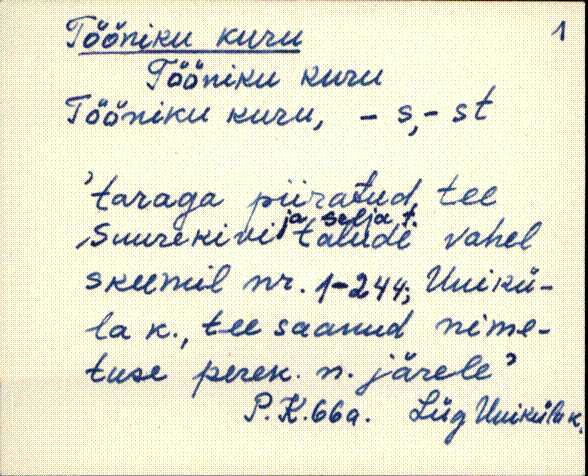 Tööniku kuru 1
Tööniku kuru
Tööniku kuru, - s, - st
'taraga piiratud tee
ja selja t.
Suurekivi taludi vahel
skeemil nr. 1-244; Unikü-
la k., tee saanud nime-
tuse perek. n. järele'
P.K. 66 a. Lüg Uniküla k.